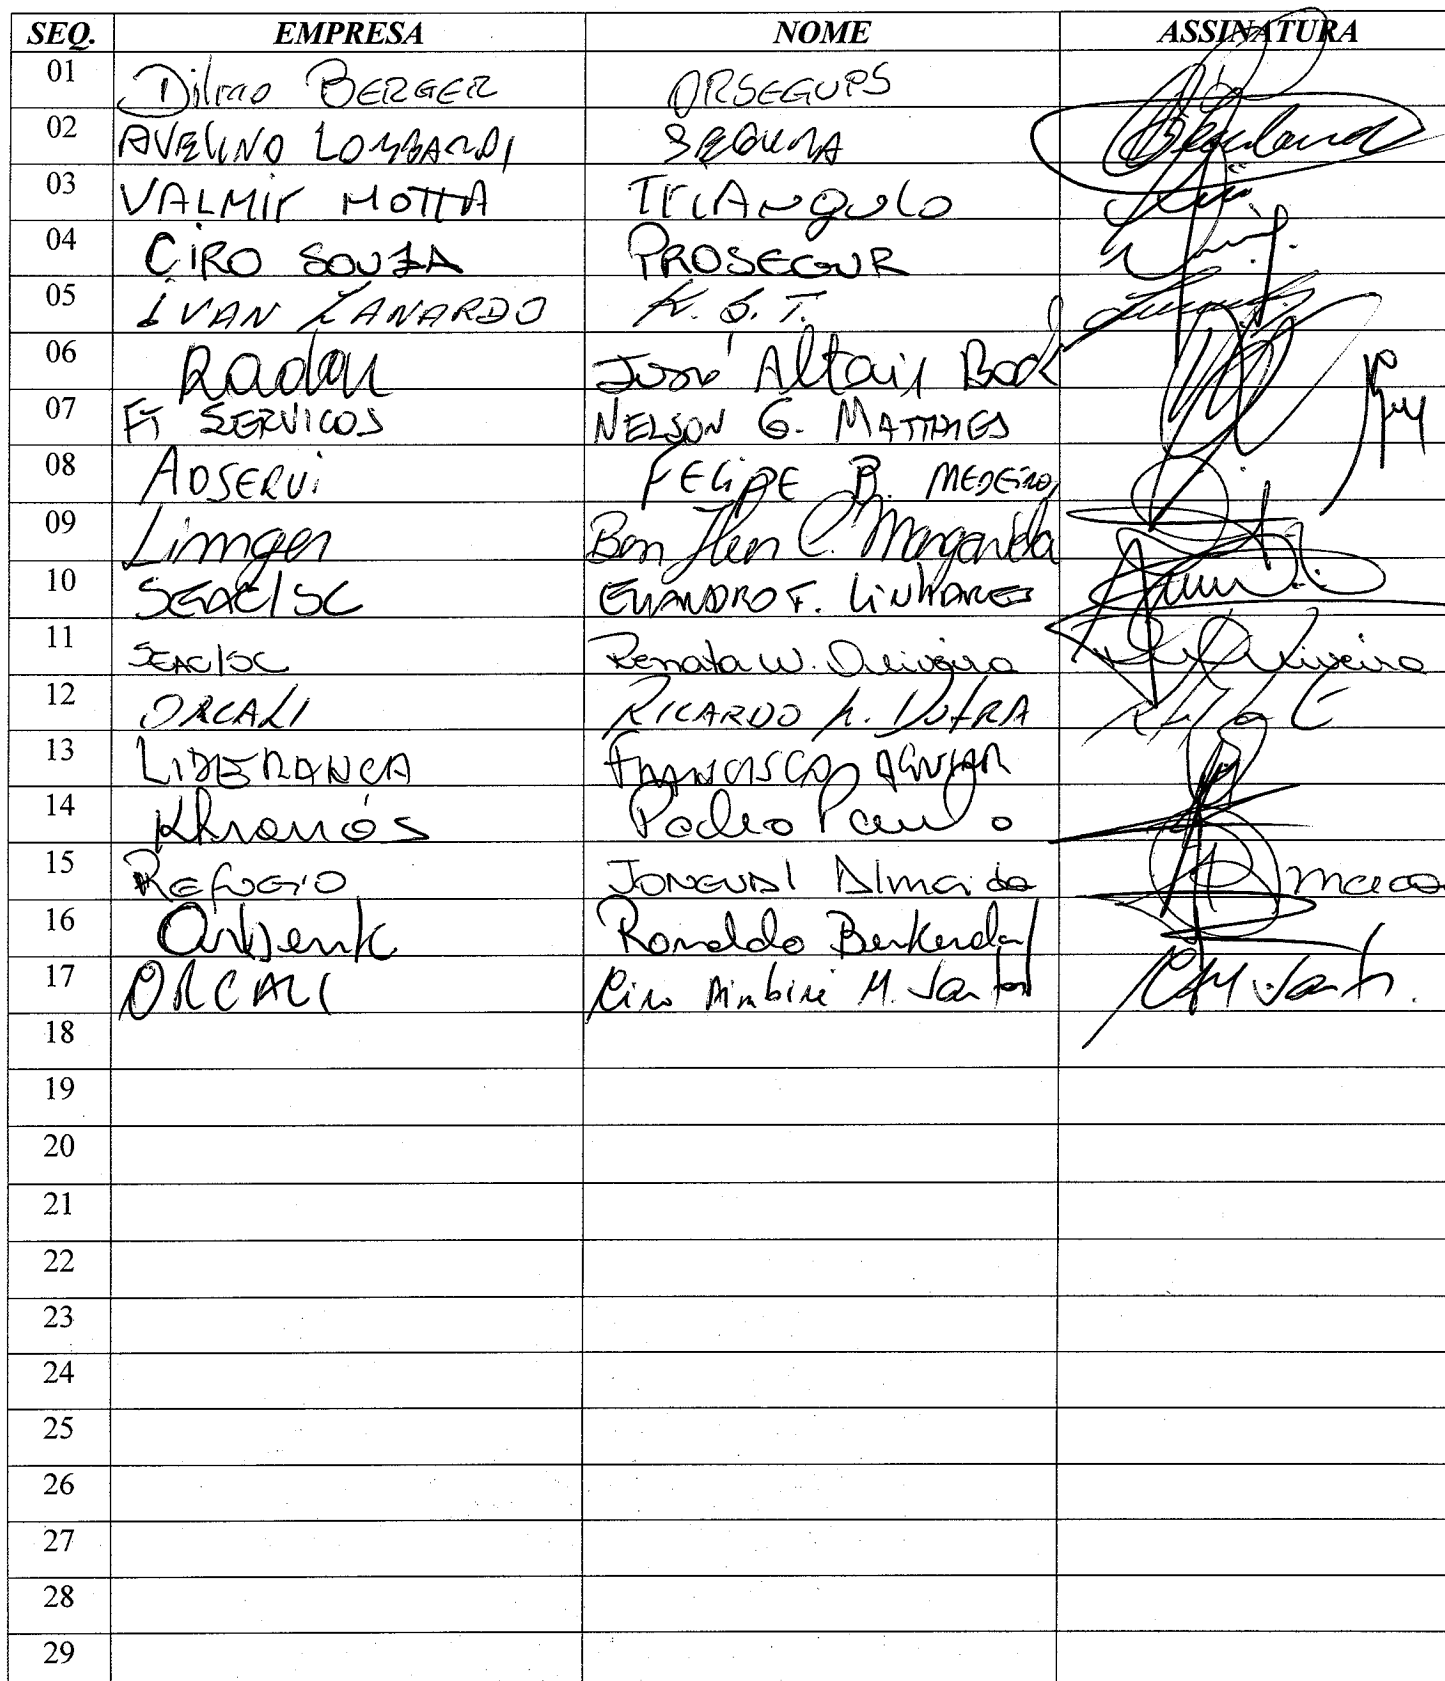 SEQ. EMPRESA NOME ASSINATURA
01 Dilmo BERGER ORSEGUPS
02 AVELINO LOMBARDI SEGURA
03 VALMIR MOTTA TRIANGULO
04 CIRO SOUZA PROSEGUR
05 IVAN ZANARDO K. S. T.
06 Radar José Altair Back
07 FT SERVICOS NELSON G. MATTHIES
08 ADSERVI FELIPE B. MEDEIROS
09 Limger Ben Hur C. Margarida
10 SEAC/SC EVANDRO F. LINHARES
11 SEAC/SC Renata W. Oliveira Oliveira
12 ORCALI RICARDO K. DUTRA
13 LIDERANCA FRANCISCO AGUIAR
14 Khronos Pedro Paulo
15 REFUGIO Almeida
16 Orbenk Ronaldo
17 ORCALI Ciro Aimbiré M. Santos
18
19
20
21
22
23
24
25
26
27
28
29